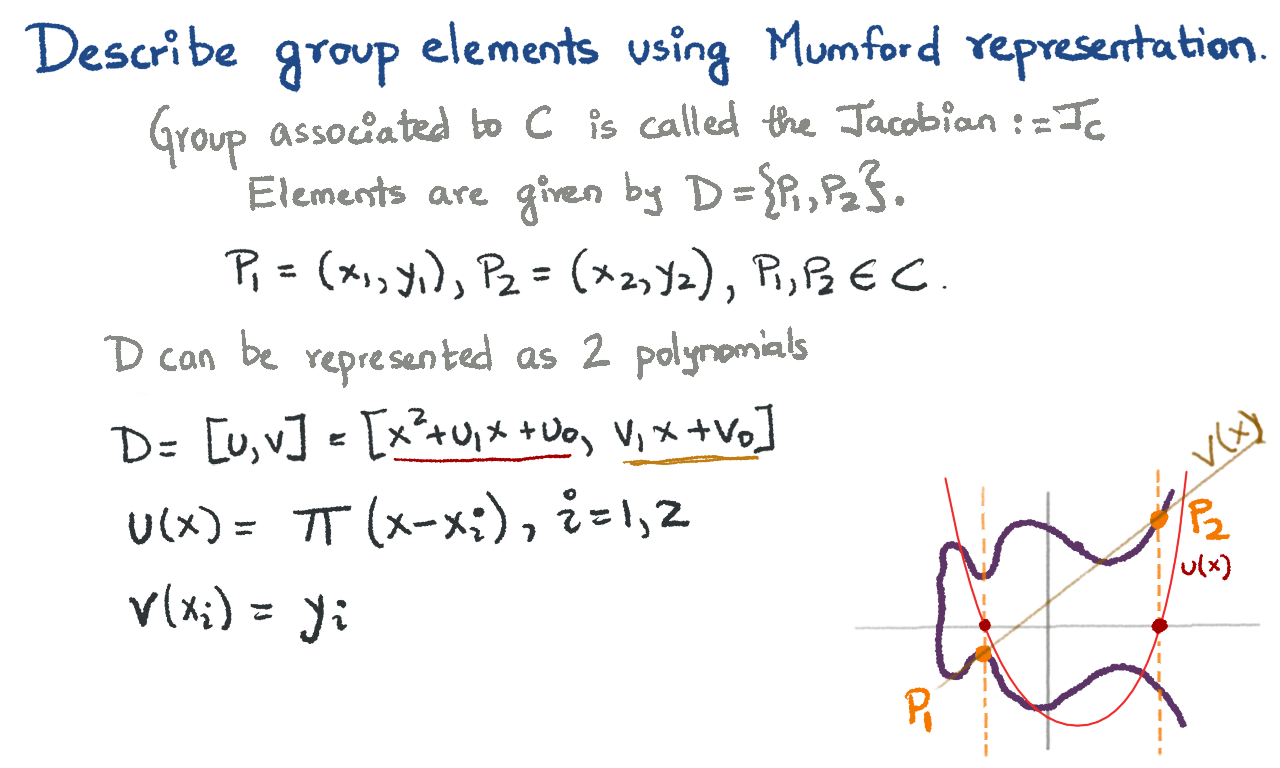 Describe group elements using Mumford representation.
Group associated to C is called the Jacobian := J_C
Elements are given by D = {P₁, P₂}.
P₁ = (x₁, y₁), P₂ = (x₂, y₂), P₁, P₂ ∈ C.
D can be represented as 2 polynomials
D = [u, v] = [x² + u₁x + u₀, v₁x + v₀]
u(x) = π (x - xᵢ), i = 1, 2
v(xᵢ) = yᵢ
v(x)
P₂
u(x)
P₁